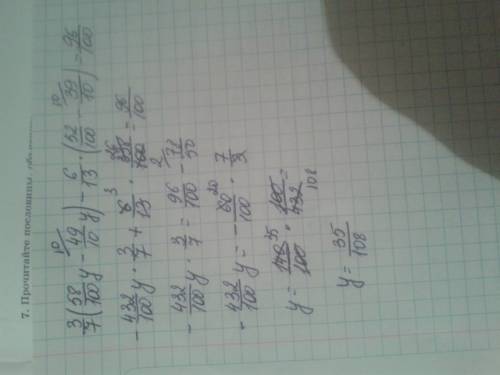 7. Прочитайте пословицы
3/7 (58/100 y - 49/10 y) - 6/13 · (52/100 - 39/10) = 96/100
- 432/100 y · 3/7 + 6/13 · 338/100 = 96/100
- 432/100 y · 3/7 = 96/100 - 78/50
- 432/100 y = - 60/100 · 7/3
y = 140/100 · 100/432 =
y = 35/108